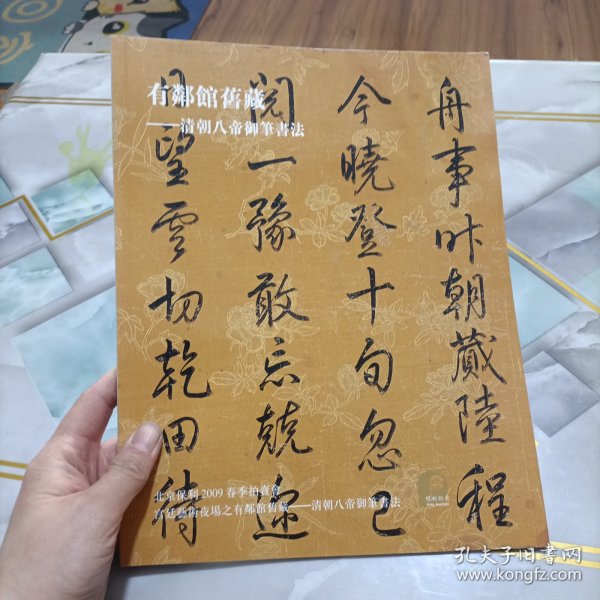 有鄰館舊藏
——清朝八帝御筆書法
舟事昨朝藏陸程
今曉登十旬忽已
閱一豫敢忘兢迩
月望雲切乾田待
北京保利2009春季拍賣會
宮廷藝術夜場之有鄰館舊藏——清朝八帝御筆書法
保利拍賣
孔夫子旧书网
www.kongfz.com